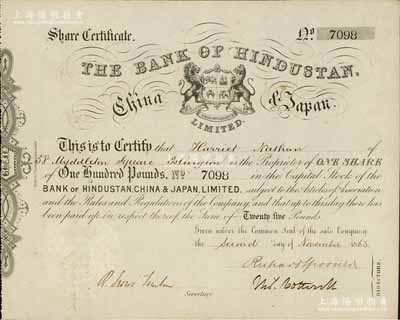 上海陽明拍賣
Share Certificate.
No 7098
THE BANK OF HINDUSTAN,
China & Japan.
LIMITED.
This is to Certify that Harriet Nathan of
58 Myddelton Square Islington is the Proprietor of ONE SHARE
of One Hundred Pounds, No 7098 in the Capital Stock of the
BANK OF HINDUSTAN, CHINA & JAPAN, LIMITED, subject to the Articles of Association
and the Rules and Regulations of the Company, and that up to this day there has
been paid up in respect thereof the Sum of Twenty five Pounds.
Given under the Common Seal of the said Company
the Second day of November 1863.
Richard Spooner
Secretary
DIRECTORS
上海陽明拍賣